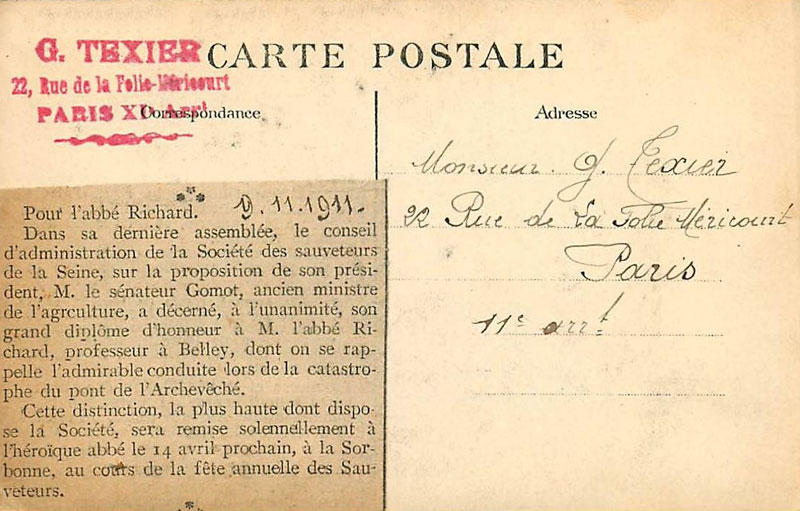 G. TEXIER
22, Rue de la Folie-Méricourt
PARIS XIe Arrt
CARTE POSTALE
Correspondance
Adresse
Pour l'abbé Richard. 9.11.1911.
Dans sa dernière assemblée, le conseil
d'administration de la Société des sauveteurs
de la Seine, sur la proposition de son prési-
dent, M. le sénateur Gomot, ancien ministre
de l'agrculture, a décerné, à l'unanimité, son
grand diplôme d'honneur à M. l'abbé Ri-
chard, professeur à Belley, dont on se rap-
pelle l'admirable conduite lors de la catastro-
phe du pont de l'Archevêché.
Cette distinction, la plus haute dont dispo-
se la Société, sera remise solennellement à
l'héroïque abbé le 14 avril prochain, à la Sor-
bonne, au cours de la fête annuelle des Sau-
veteurs.
Monsieur. G. Texier
22 Rue de La Folie Méricourt
Paris
11e arrt